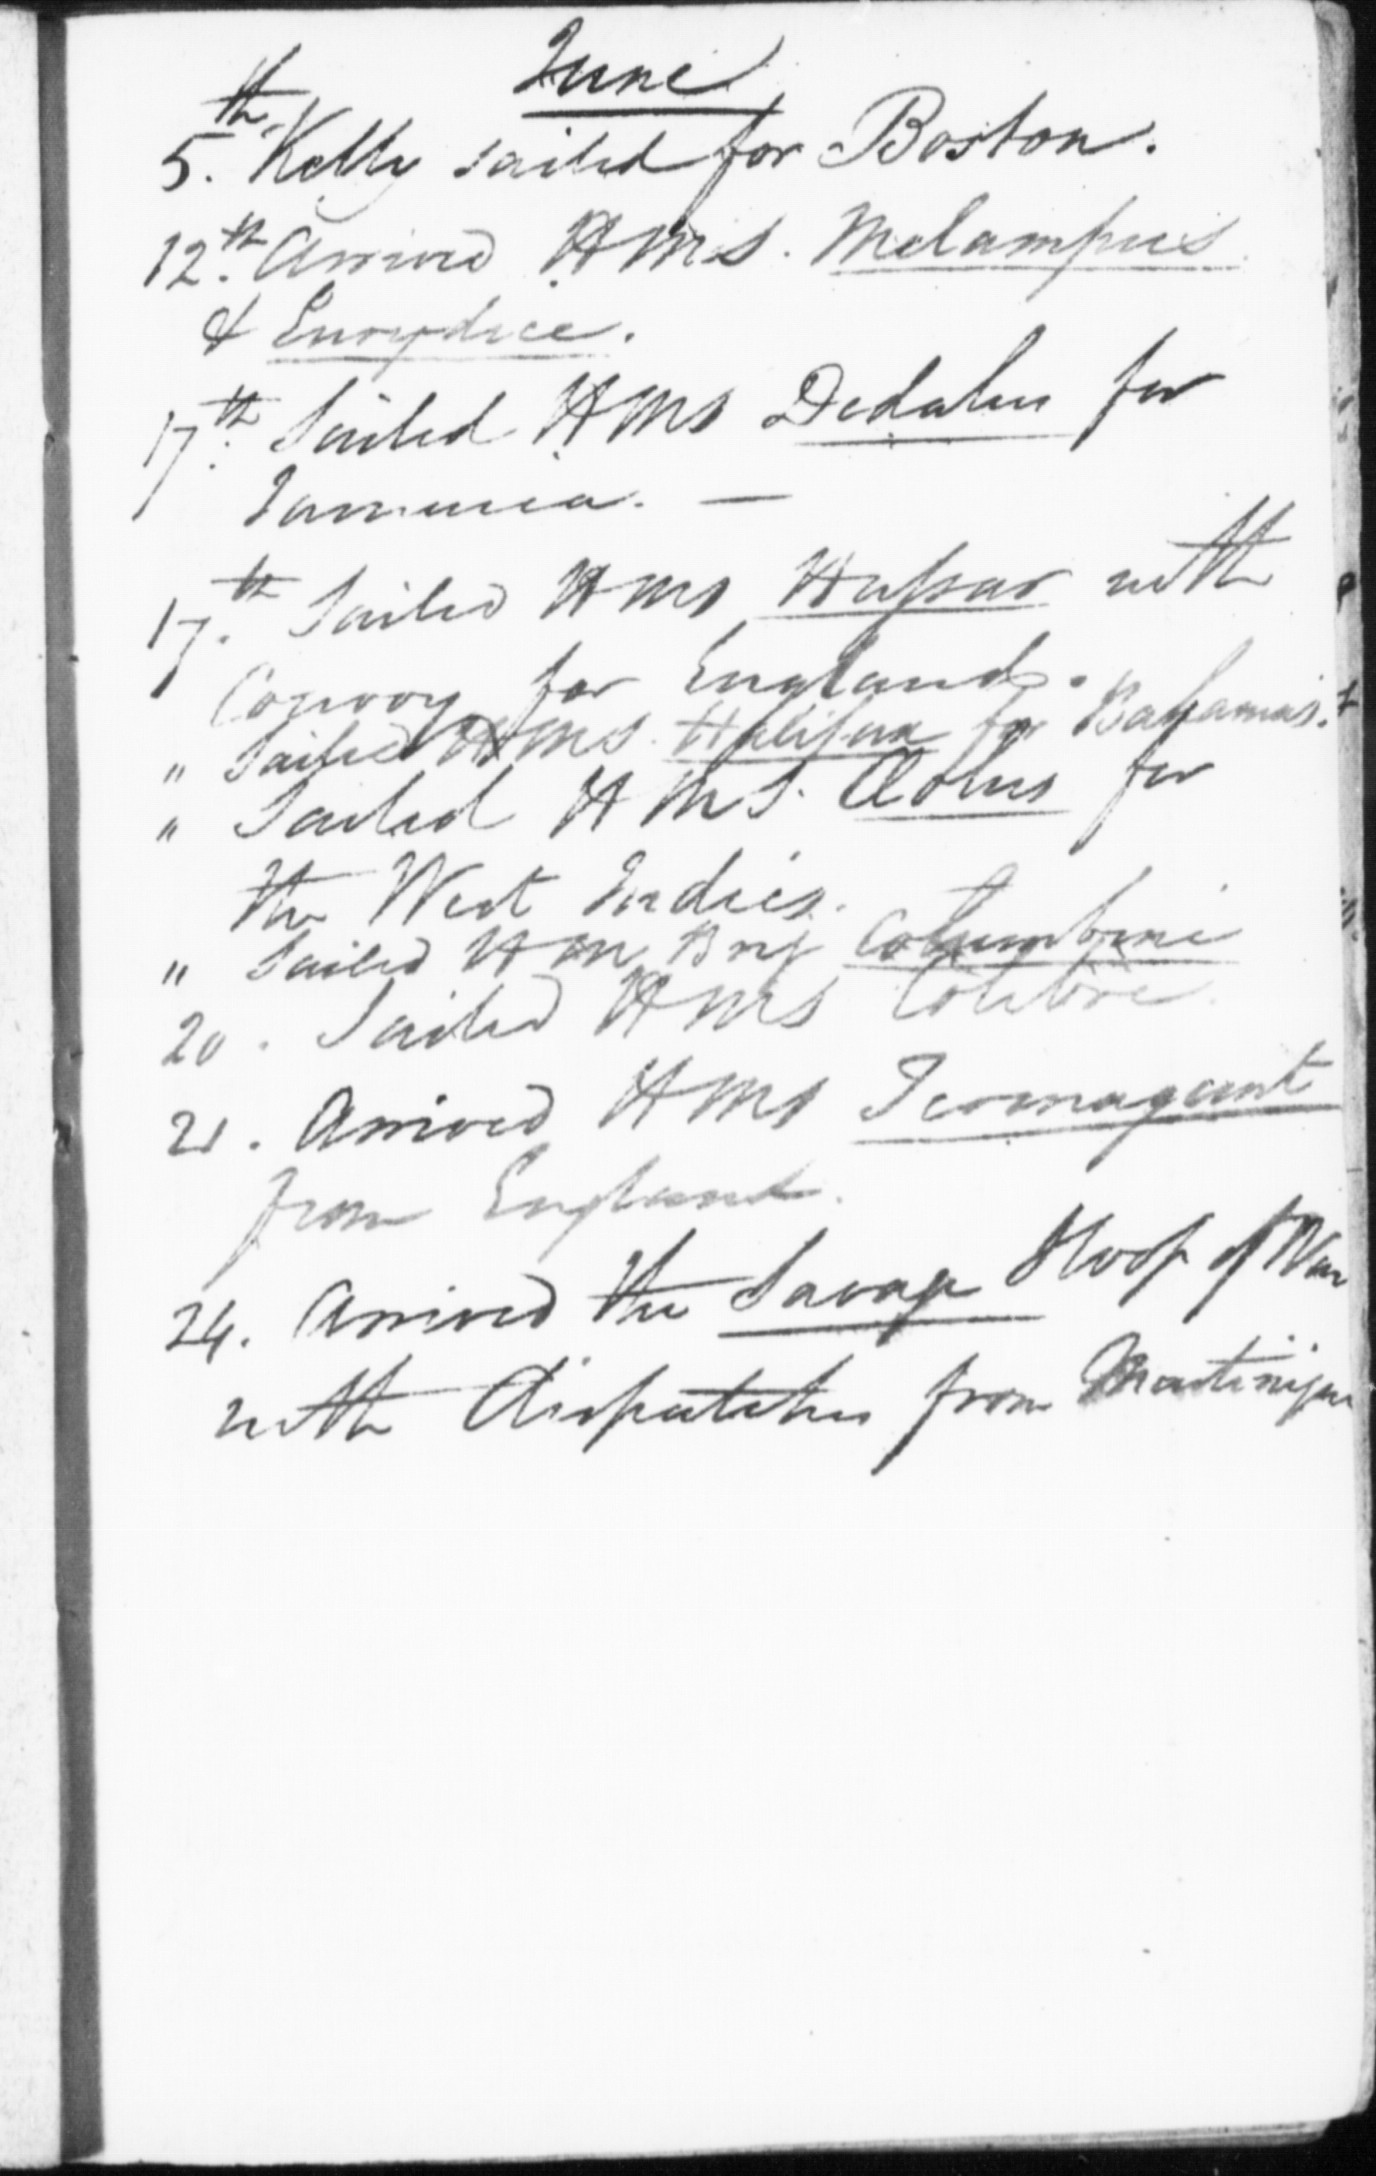 June
5.th Kelly sailed for Boston.
12.th Arrived HMS. Melampus
& Eurydice.
17.th Sailed HMS Dedalus for
Jamaica. —
17.th Sailed HMS Hussar with
Convoy for England.
" Sailed HMS. Halifax for Bahamas.
" Sailed HMS. Æolus for
the West Indies.
" Sailed HM Brig Columbine
20. Sailed HMS Colibrie
21. Arrived HMS Termagant
from England.
24. Arrived the Savage Sloop of War
with dispatches from Martinique